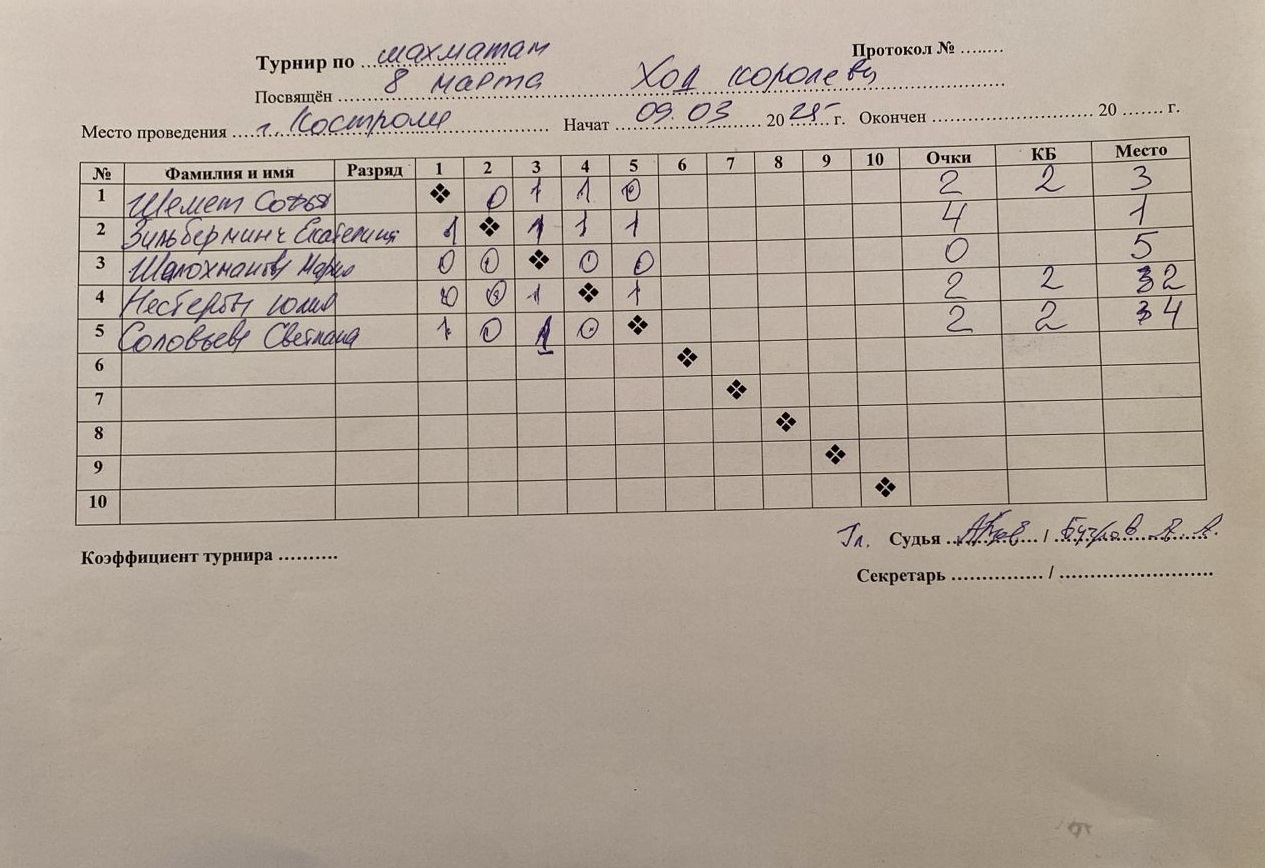 Турнир по шахматам Протокол № ........
Посвящён 8 марта Ход королевы
Место проведения г. Кострома Начат 09.03 2025 г. Окончен .............................. 20 ....... г.
№ Фамилия и имя Разряд 1 2 3 4 5 6 7 8 9 10 Очки КБ Место
1 Шемет Софья ❖ 0 1 1 0 2 2 3
2 Зильберминч Екатерина 1 ❖ 1 1 1 4 1
3 Мария 0 0 ❖ 0 0 0 5
4 Юлия 0 0 1 ❖ 1 2 2 2
5 Соловьева Светлана 1 0 1 0 ❖ 2 2 4
6 ❖
7 ❖
8 ❖
9 ❖
10 ❖
Гл. Судья / А. А.
Коэффициент турнира ..........
Секретарь ............... / .........................